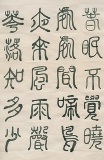 春眠不覺曉
處處聞啼鳥
夜來風雨聲
華落知多少